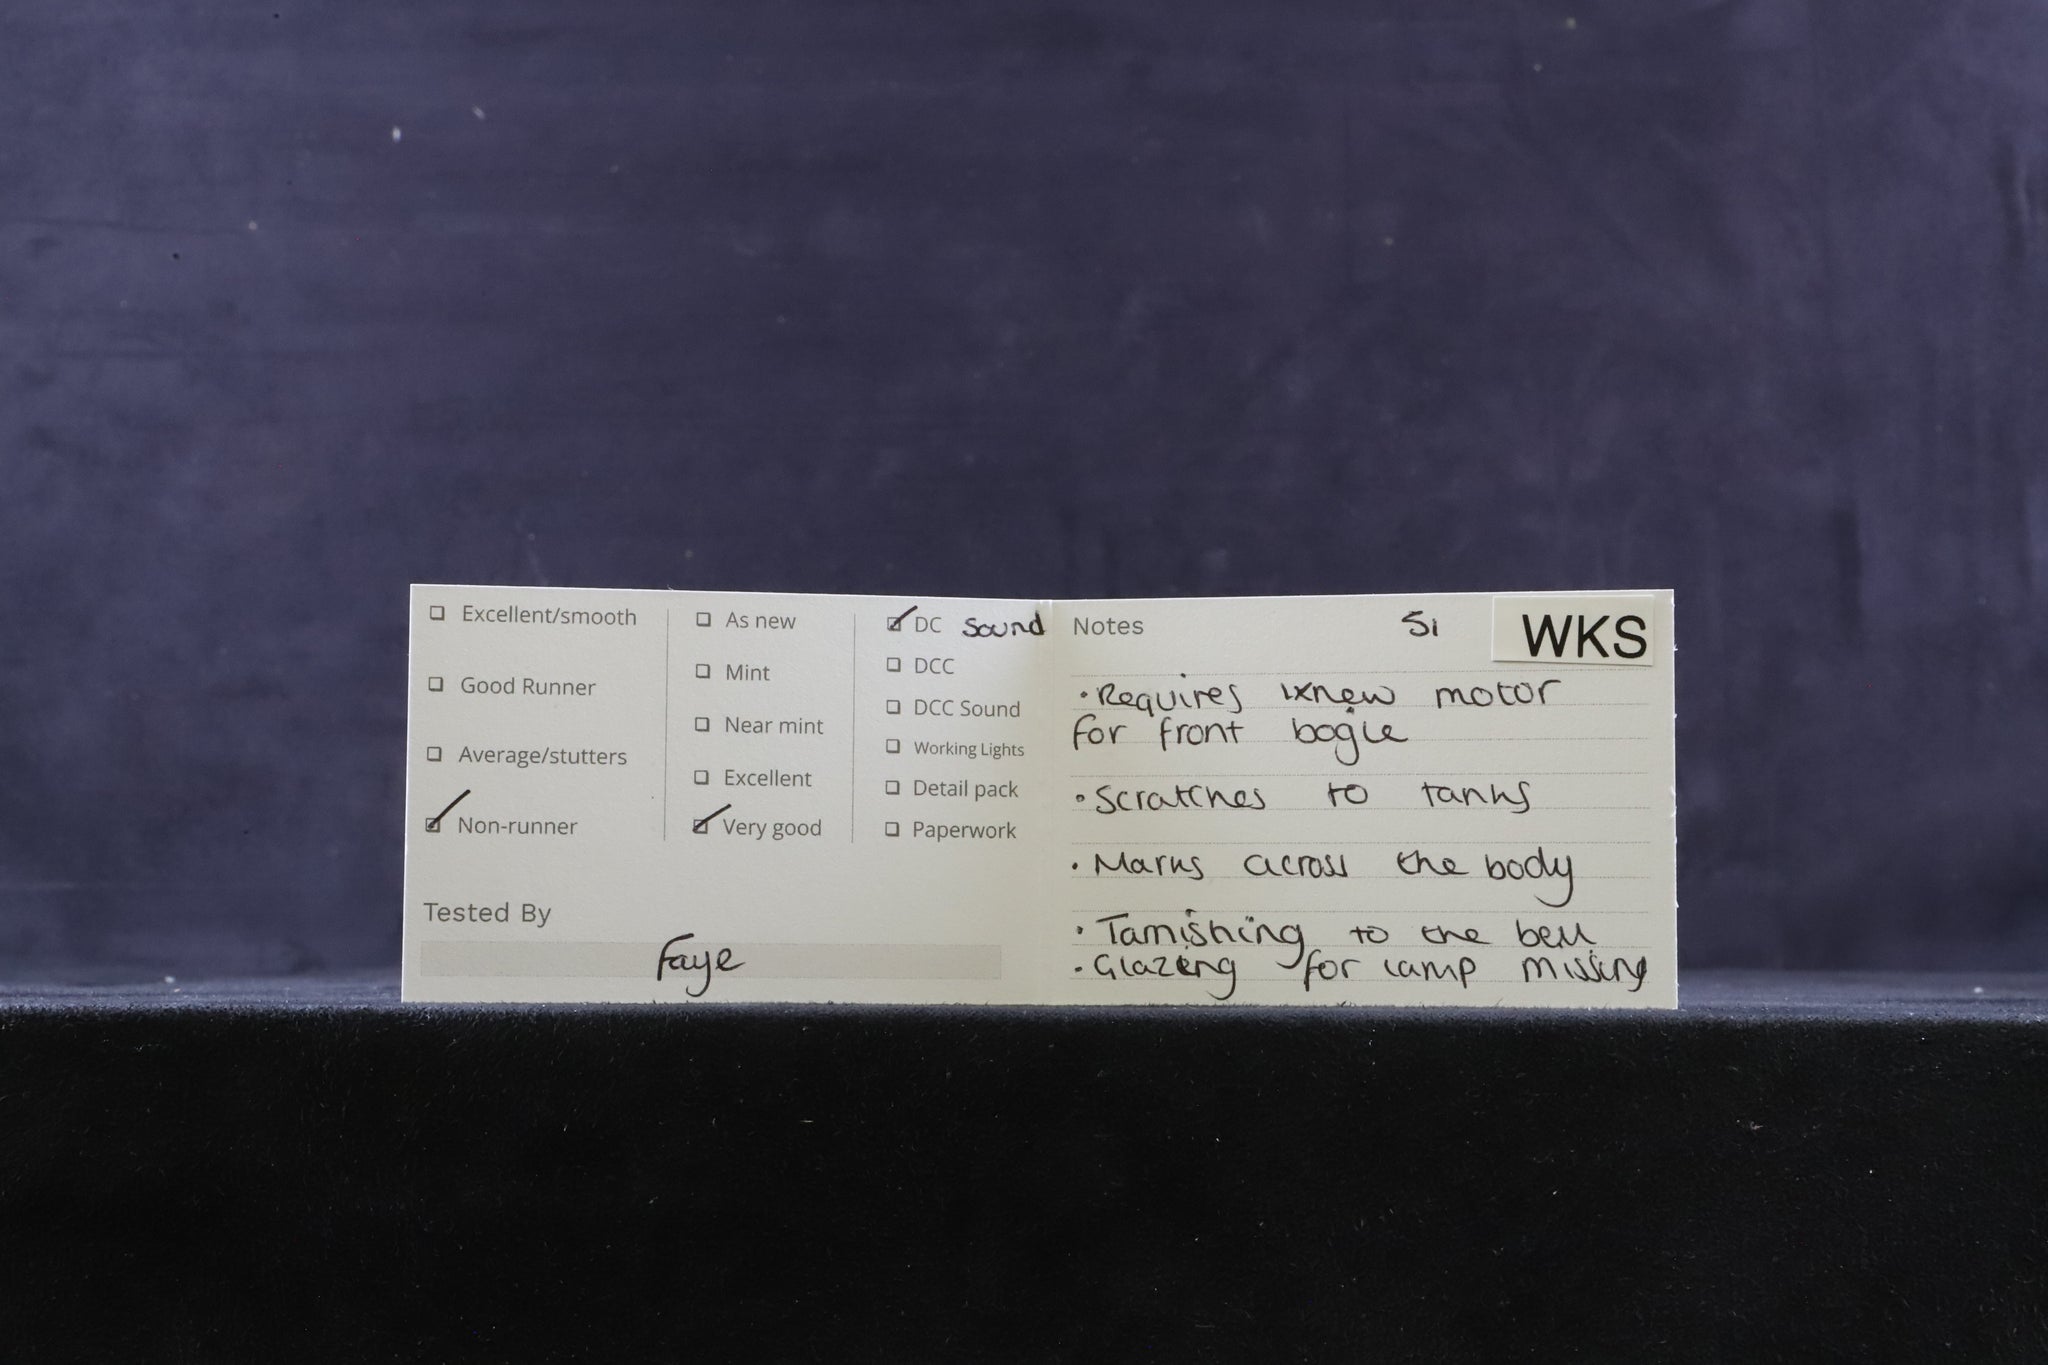 Excellent/smooth
Good Runner
Average/stutters
Non-runner
As new
Mint
Near mint
Excellent
Very good
DC Sound
DCC
DCC Sound
Working Lights
Detail pack
Paperwork
Tested By
Faye
Notes 51 WKS
• Requires 1x new motor
for front bogie
• Scratches to tanks
• Marks across the body
• Tarnishing to the bell
• Glazing for lamp missing